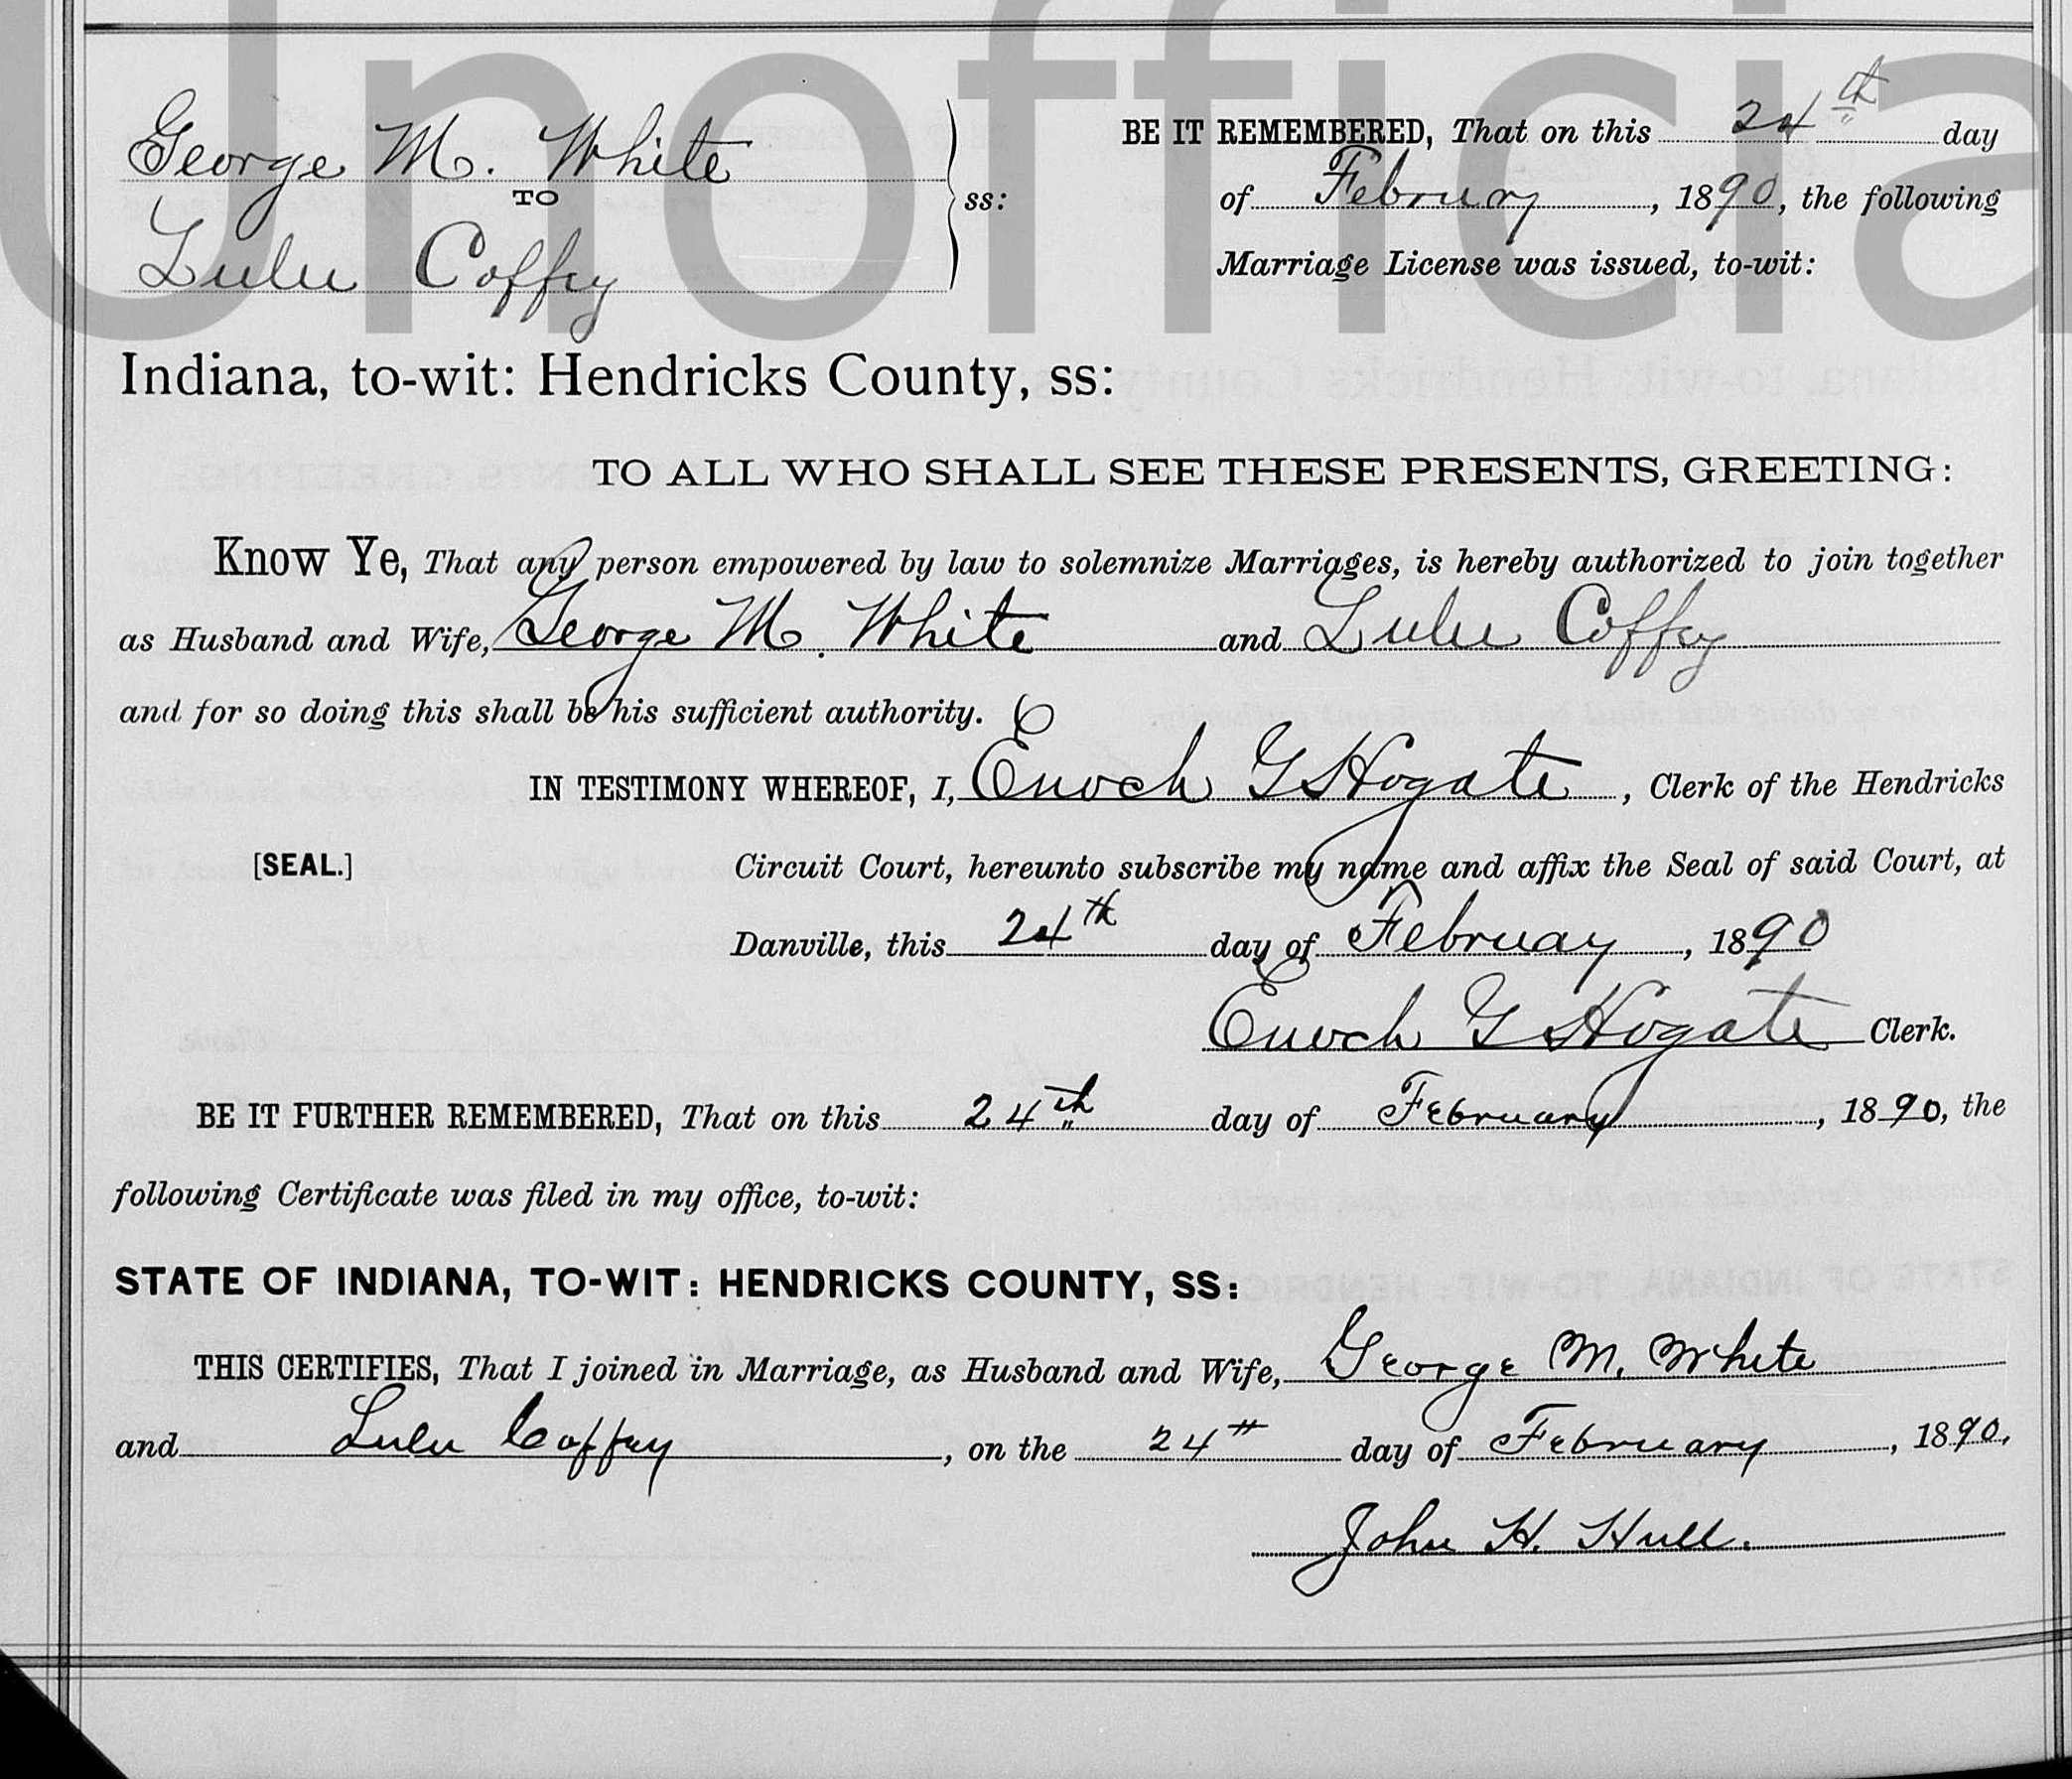 Unofficia
George M. White
TO
Lulu Coffey
ss:
BE IT REMEMBERED, That on this 24th day
of Februry, 1890, the following
Marriage License was issued, to-wit:
Indiana, to-wit: Hendricks County, ss:
TO ALL WHO SHALL SEE THESE PRESENTS, GREETING:
Know Ye, That any person empowered by law to solemnize Marriages, is hereby authorized to join together
as Husband and Wife, George M. White and Lulu Coffey
and for so doing this shall be his sufficient authority.
IN TESTIMONY WHEREOF, I, Enoch G Hogate, Clerk of the Hendricks
[SEAL.] Circuit Court, hereunto subscribe my name and affix the Seal of said Court, at
Danville, this 24th day of Februay, 1890
Enoch G Hogate Clerk.
BE IT FURTHER REMEMBERED, That on this 24th day of February, 1890, the
following Certificate was filed in my office, to-wit:
STATE OF INDIANA, TO-WIT: HENDRICKS COUNTY, SS:
THIS CERTIFIES, That I joined in Marriage, as Husband and Wife, George M. White
and Lulu Coffey, on the 24th day of February, 1890.
John H. Hull.